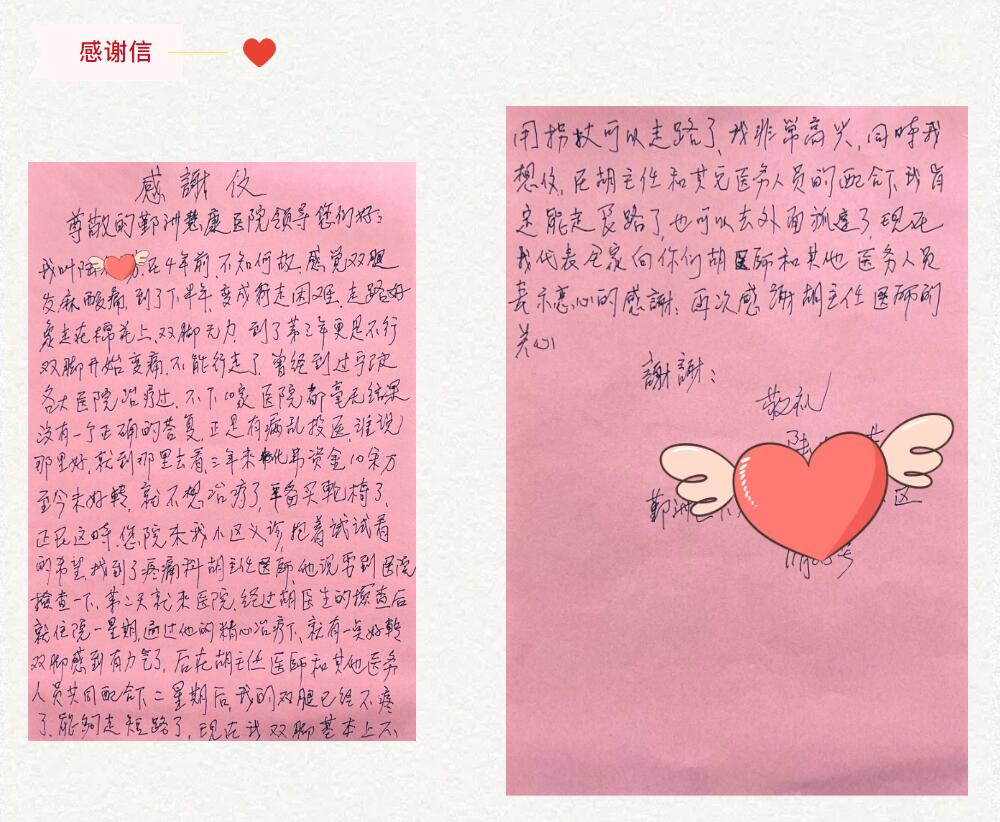 感谢信
感謝仪
尊敬的鄞洲慧康医院领导您们好:
我叫陆 在4年前,不知何故,感觉双腿
发麻酸痛,到了下半年,变成行走困难,走路好
象走在棉花上,双脚无力,到了第三年更是不行
双脚开始变痛,不能行走了,曾经到过宁波
各大医院治疗过,不下10家医院都毫无结果
没有一个正确的答复,正是有病乱投医,谁说
那里好,就到那里去看,三年来 化吊资金10余万
至今未好轉,就不想治疗了,准备买輪椅了,
正在这时,您院来我小区义诊,抱着试试看
的希望,找到了疼痛科胡主任医师,他说需到医院
檢查一下,第二天就来医院,经过胡医生的檢查后
就住院一星期,通过他的精心治疗下,就有一点好轉
双脚感到有力气了,后在胡主任医師和其他医务
人员共同配合下,二星期后,我的双腿已经不疼
了,能夠走短路了,现在我双脚基本上不
用拐杖可以走路了,我非常高兴,同時我
想仪,在胡主任和其它医务人员的配合下,我肯
定能走長路了,也可以去外面逛逛了,现在
我代表全家向你们胡医師和其他医务人员
表示衷心的感謝,再次感謝胡主任医師的
关心
謝謝:
敬礼
陆
鄞洲 区
号